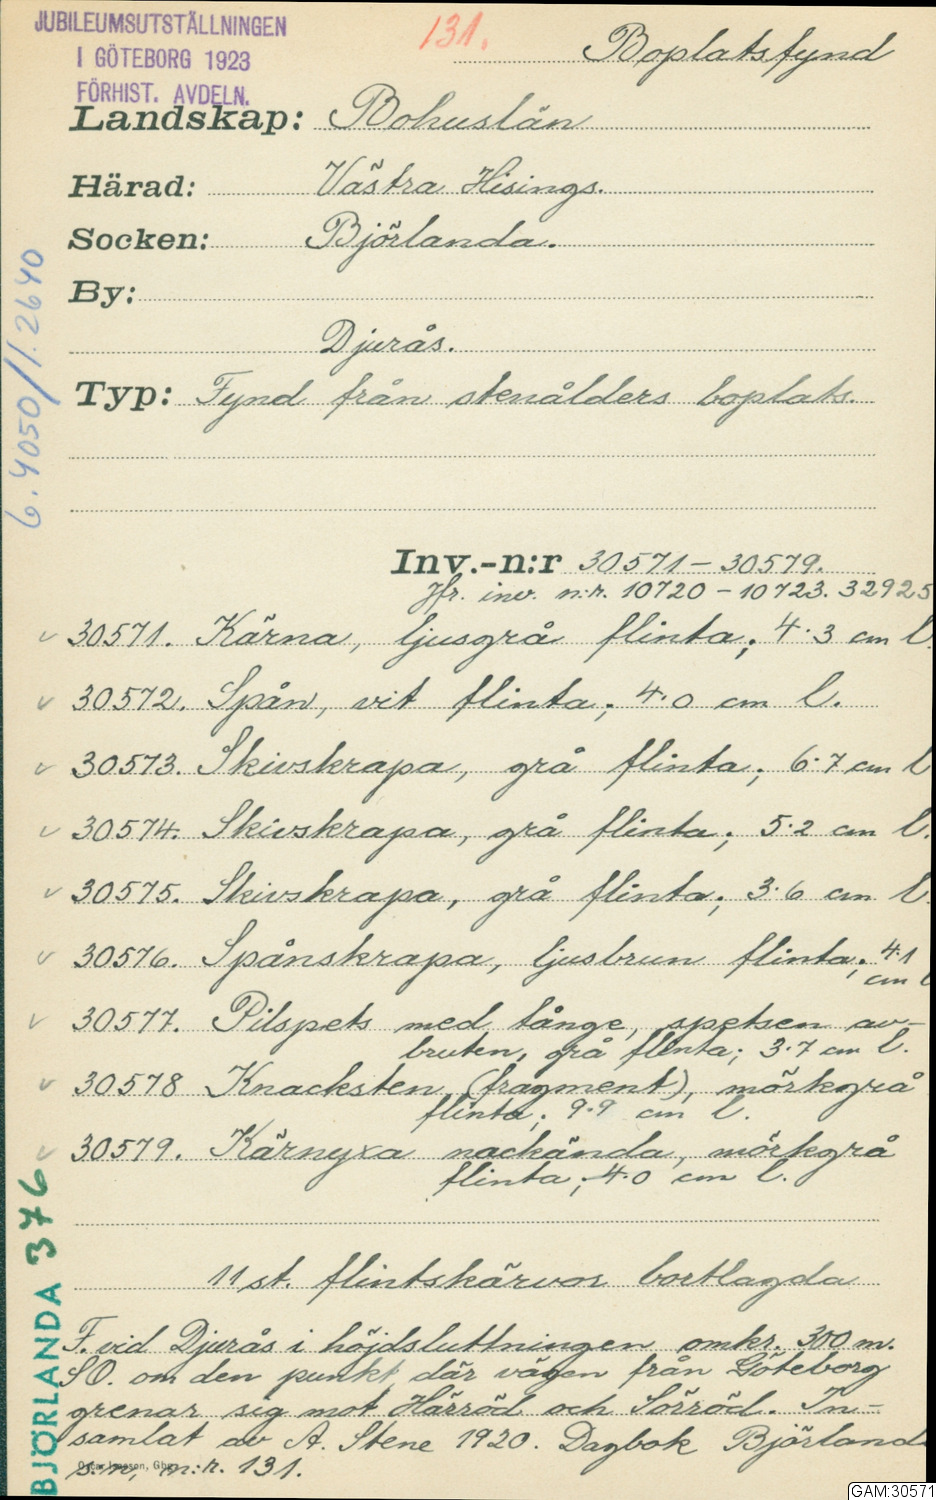 JUBILEUMSUTSTÄLLNINGEN
I GÖTEBORG 1923
FÖRHIST. AVDELN.
131.
Boplatsfynd
Landskap: Bohuslän
Härad: Västra Hisings.
Socken: Björlanda.
By:
Djurås.
Typ: Fynd från stenålders boplats.
6.4050/1.2640
Inv.-n:r 30571–30579.
Jfr. inv. n:r. 10720–10723. 32925
v 30571. Kärna, ljusgrå flinta; 4.3 cm l.
v 30572. Spån, vit flinta; 4.0 cm l.
v 30573. Skivskrapa, grå flinta; 6.7 cm l
v 30574. Skivskrapa, grå flinta; 5.2 cm l.
v 30575. Skivskrapa, grå flinta; 3.6 cm l.
v 30576. Spånskrapa, ljusbrun flinta; 4.1
cm l
v 30577. Pilspets med tånge, spetsen av-
bruten, grå flinta; 3.7 cm l.
v 30578 Knacksten (fragment), mörkgrå
flinta; 9.9 cm l.
v 30579. Kärnyxa nackända, mörkgrå
flinta; 4.0 cm l.
11 st. flintskärvor bortlagda
F. vid Djurås i höjdsluttningen omkr. 300 m.
SO. om den punkt, där vägen från Göteborg
grenar sig mot Härröd och Sörröd. In-
samlat av A. Stene 1920. Dagbok Björland
s:n, n:r. 131.
BJÖRLANDA 376
GAM:30571